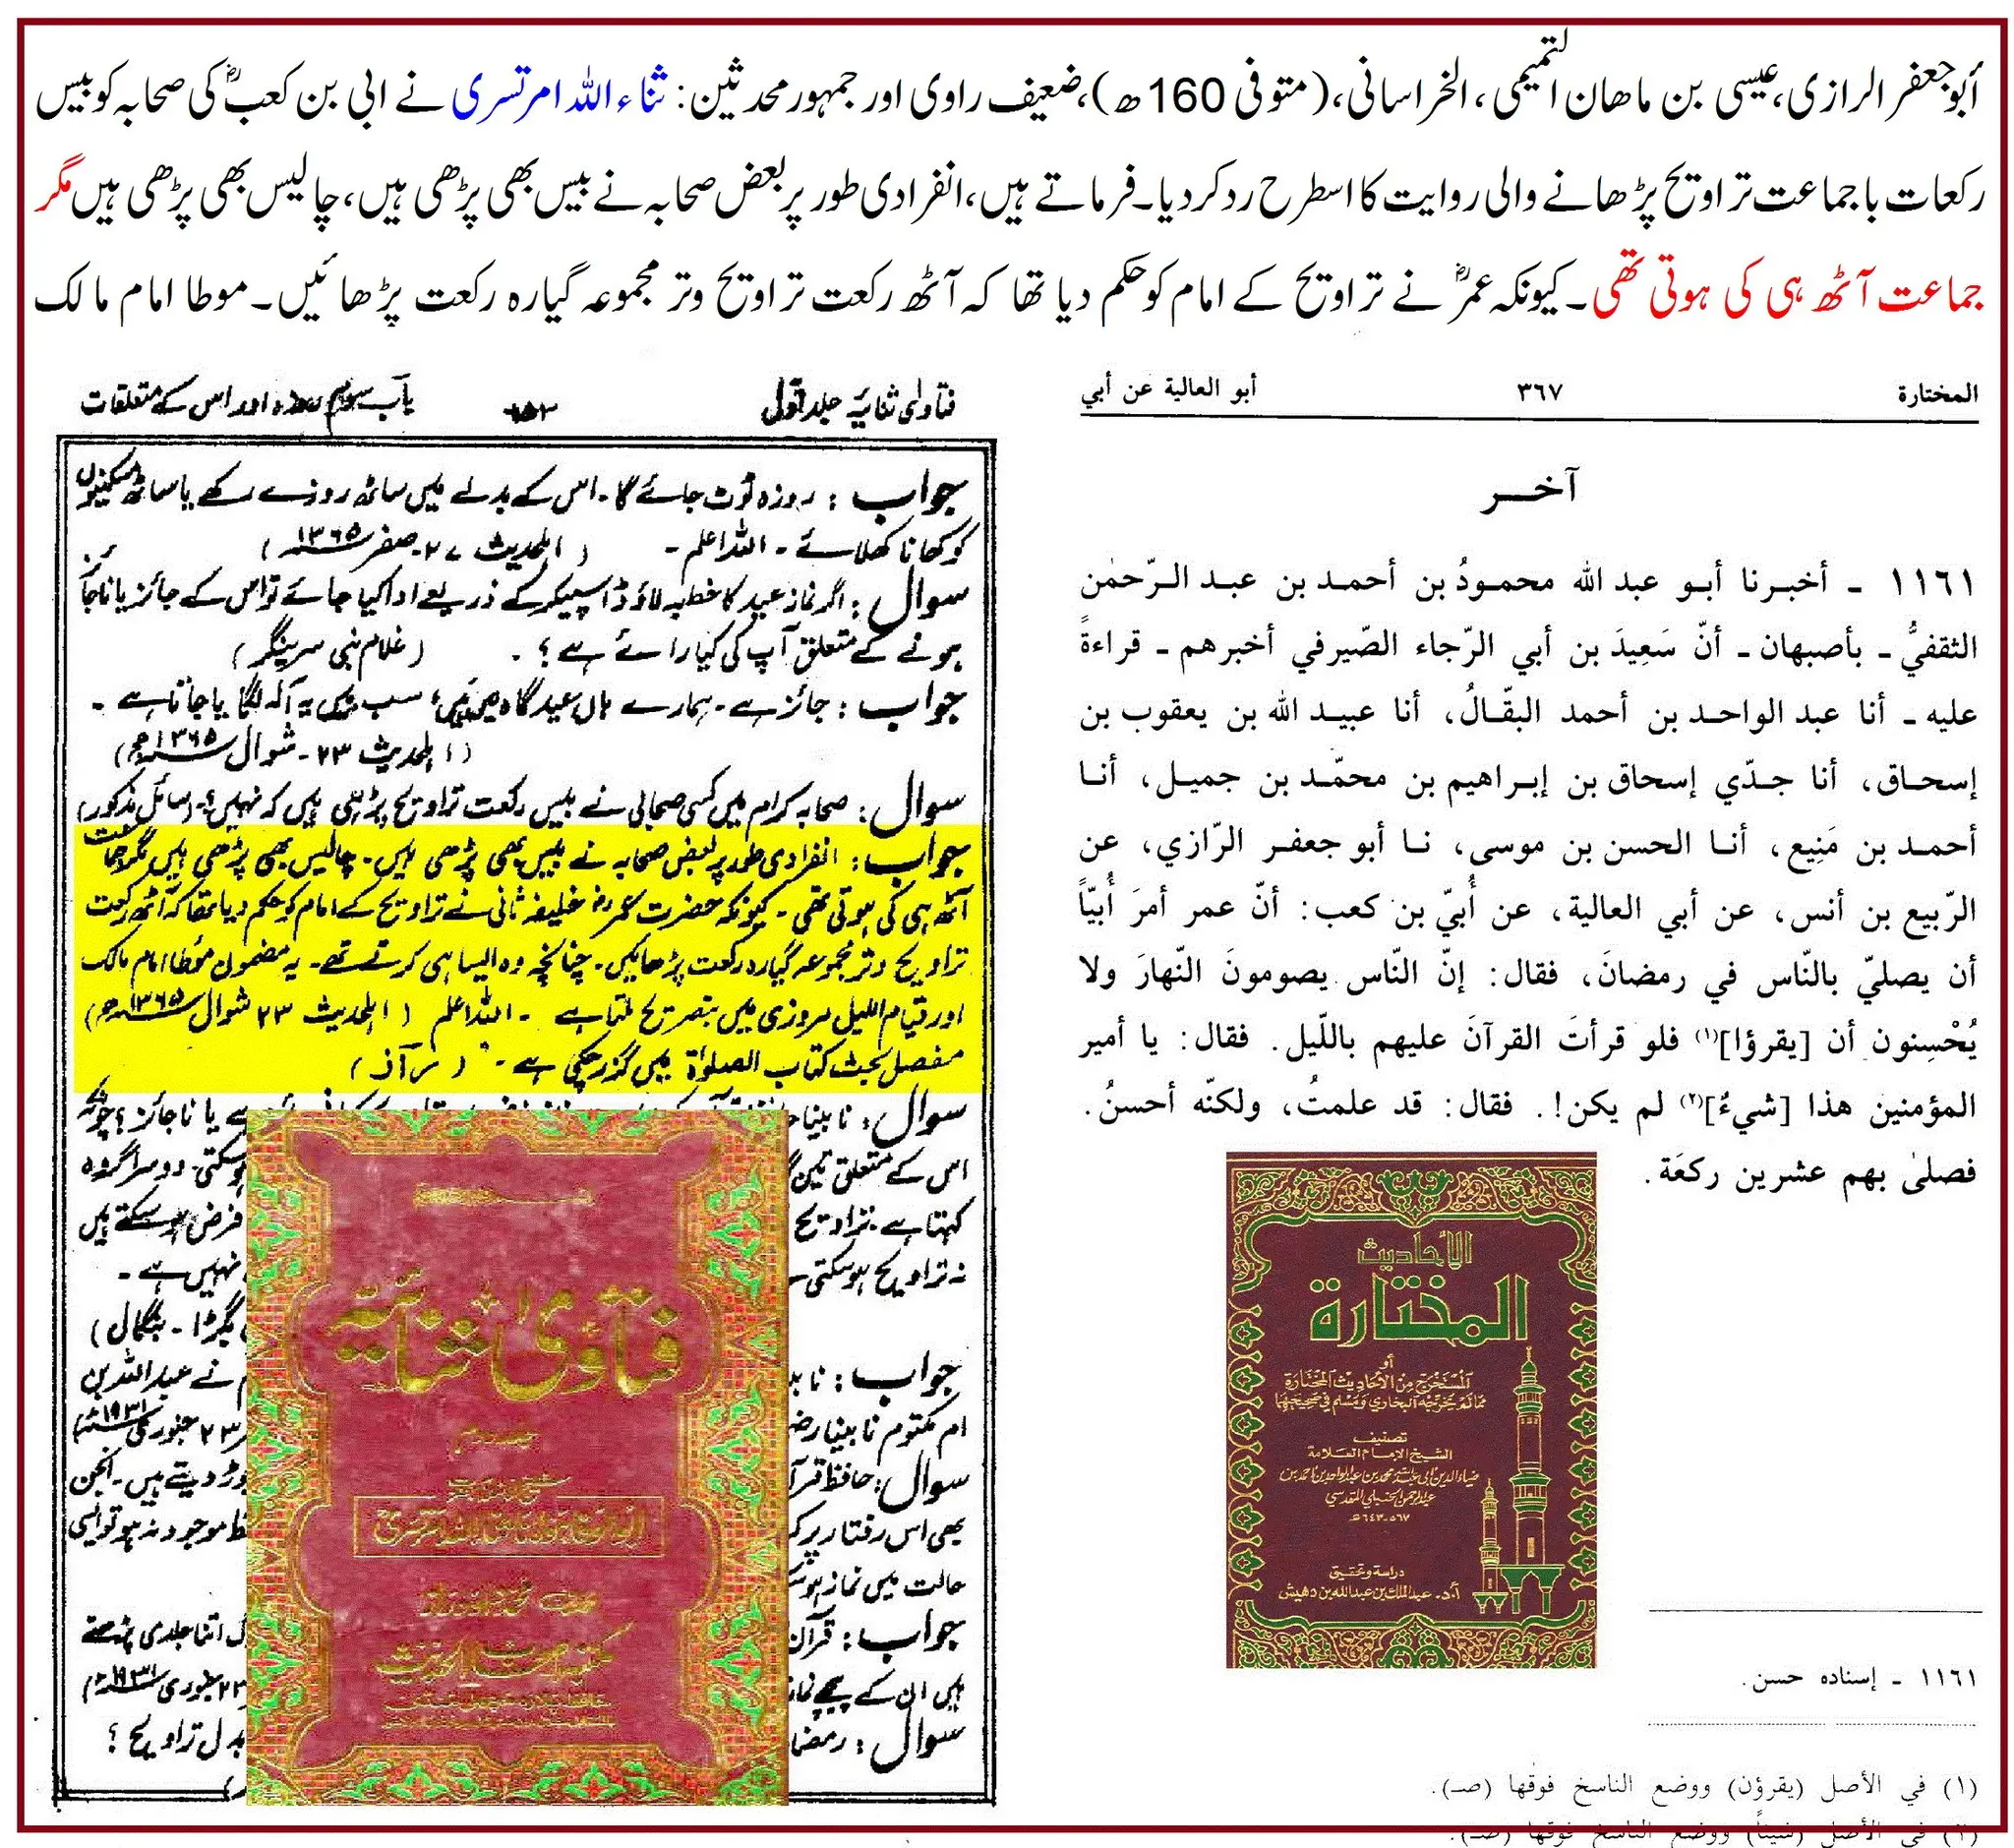 أبو جعفر الرازی، عیسی بن ماھان التمیمی، الخراسانی، (متوفی 160ھ)، ضعیف راوی اور جمہور محدثین: ثناء اللہ امرتسری نے ابی بن کعبؓ کی صحابہ کو بیس
رکعات با جماعت تراویح پڑھانے والی روایت کا اسطرح رد کردیا۔ فرماتے ہیں، انفرادی طور پر بعض صحابہ نے بیس بھی پڑھی ہیں، چالیس بھی پڑھی ہیں مگر
جماعت آٹھ ہی کی ہوتی تھی۔ کیونکہ عمرؓ نے تراویح کے امام کو حکم دیا تھا کہ آٹھ رکعت تراویح وتر مجموعہ گیارہ رکعت پڑھائیں۔ موطا امام مالک
المختارة ٣٦٧ أبو العالية عن أبي
آخر
١١٦١ ـ أخبرنا أبو عبد الله محمودُ بن أحمد بن عبد الرّحمٰن
الثقفيُّ ـ بأصبهان ـ أنّ سَعِيدَ بن أبي الرّجاء الصّيرفي أخبرهم ـ قراءةً
عليه ـ أنا عبد الواحد بن أحمد البقّالُ، أنا عبيد الله بن يعقوب بن
إسحاق، أنا جدّي إسحاق بن إبراهيم بن محمّد بن جميل، أنا
أحمد بن مَنِيع، أنا الحسن بن موسى، نا أبو جعفر الرّازي، عن
الرّبيع بن أنس، عن أبي العالية، عن أُبيّ بن كعب: أنّ عمر أمرَ أُبيّاً
أن يصليّ بالنّاس في رمضانَ، فقال: إنّ النّاس يصومونَ النّهارَ ولا
يُحْسِنون أن [يقرؤا](١) فلو قرأتَ القرآنَ عليهم باللّيل. فقال: يا أمير
المؤمنين هذا [شيءٌ](٢) لم يكن!. فقال: قد علمتُ، ولكنّه أحسنُ.
فصلىٰ بهم عشرين ركعَة.
الأحاديث
المختارة
أو
المستخرج من الأحاديث المختارة
مما لم يخرجه البخاري ومسلم في صحيحيهما
تصنيف
الشيخ الإمام العلامة
ضياء الدين أبي عبد الله محمد بن عبد الواحد بن أحمد بن
عبد الرحمن الحنبلي المقدسي
٥٦٧-٦٤٣ هـ
دراسة وتحقيق
أ.د. عبد الملك بن عبد الله بن دهيش
١١٦١ ـ إسناده حسن.
(١) في الأصل (يقرؤن) ووضع الناسخ فوقها (صـ).
(٢) في الأصل (شيئاً) ووضع الناسخ فوقها (صـ).
فتاوٰی ثنائیہ جلد اول باب سوم اور اس کے متعلقات
جواب: روزہ ٹوٹ جائے گا۔ اس کے بدلے میں ساٹھ روزے رکھے یا ساٹھ مسکینوں
کو کھانا کھلائے۔ اللہ اعلم۔ (اہلحدیث ۲۷۔ صفر ۱۳۶۵ھ)
سوال: اگر نماز عید کا خطبہ لاؤڈ اسپیکر کے ذریعے ادا کیا جائے تو اس کے جائز یا ناجائز
ہونے کے متعلق آپ کی کیا رائے ہے؟۔ (غلام نبی سرینگر)
جواب: جائز ہے۔ ہمارے ہاں عید گاہ میں یہ آلہ لگایا جاتا ہے۔
(اہلحدیث ۲۳۔ شوال ۱۳۶۵ھ)
سوال: صحابہ کرام میں کسی صحابی نے بیس رکعت تراویح پڑھی ہیں کہ نہیں؟ (سائل مذکور)
جواب: انفرادی طور پر بعض صحابہ نے بیس بھی پڑھی ہیں۔ چالیس بھی پڑھی ہیں مگر جماعت
آٹھ ہی کی ہوتی تھی۔ کیونکہ حضرت عمرؓ خلیفہ ثانی نے تراویح کے امام کو حکم دیا تھا کہ آٹھ رکعت
تراویح وتر مجموعہ گیارہ رکعت پڑھائیں۔ چنانچہ وہ ایسا ہی کرتے تھے۔ یہ مضمون مؤطا امام مالک
اور قیام اللیل مروزی میں بتصریح ملتا ہے۔ اللہ اعلم (اہلحدیث ۲۳ شوال ۱۳۶۵ھ)
مفصل بحث کتاب الصلوٰة میں گزر چکی ہے۔ (راز)
سوال: نابینا یا ناجائز؟ چونکہ
اس کے متعلق تین ہوسکتی۔ دوسرا گروہ
کہتا ہے۔ تراویح فرض ہوسکتے ہیں
نہ تراویح ہوسکتی نہیں ہے۔
بنگال)
جواب: نے عبداللہ بن
ام مکتوم نابینا ۲۳ جنوری ۱۹۳۱ء)
سوال: حافظ دیتے ہیں۔
بھی اس رفتار پر موجود نہ ہو تو ایسی
حالت میں نماز
جواب: قرآن اتنا جلدی پڑھتے
ہیں ان کے پیچھے ۱۹۳۱ء)
سوال: رمضا بدل تراویح؟
فتاوٰی ثنائیہ